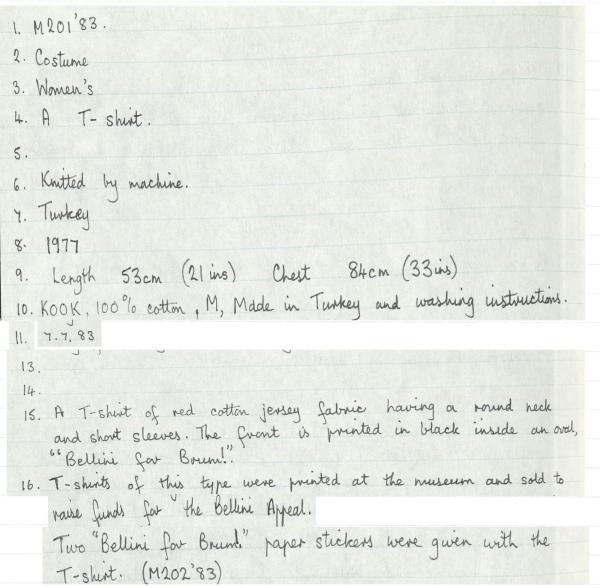 1. M201'83.
2. Costume
3. Women's
4. A T-shirt.
5.
6. Knitted by machine.
7. Turkey
8. 1977
9. Length 53cm (21 ins) Chest 84cm (33 ins)
10. KOOK, 100% cotton, M, Made in Turkey and washing instructions.
11. 7.7.83
13.
14.
15. A T-shirt of red cotton jersey fabric having a round neck
and short sleeves. The front is printed in black inside an oval,
““Bellini for Brum!”.
16. T-shirts of this type were printed at the museum and sold to
raise funds for the Bellini Appeal.
Two “Bellini for Brum!” paper stickers were given with the
T-shirt. (M202'83)